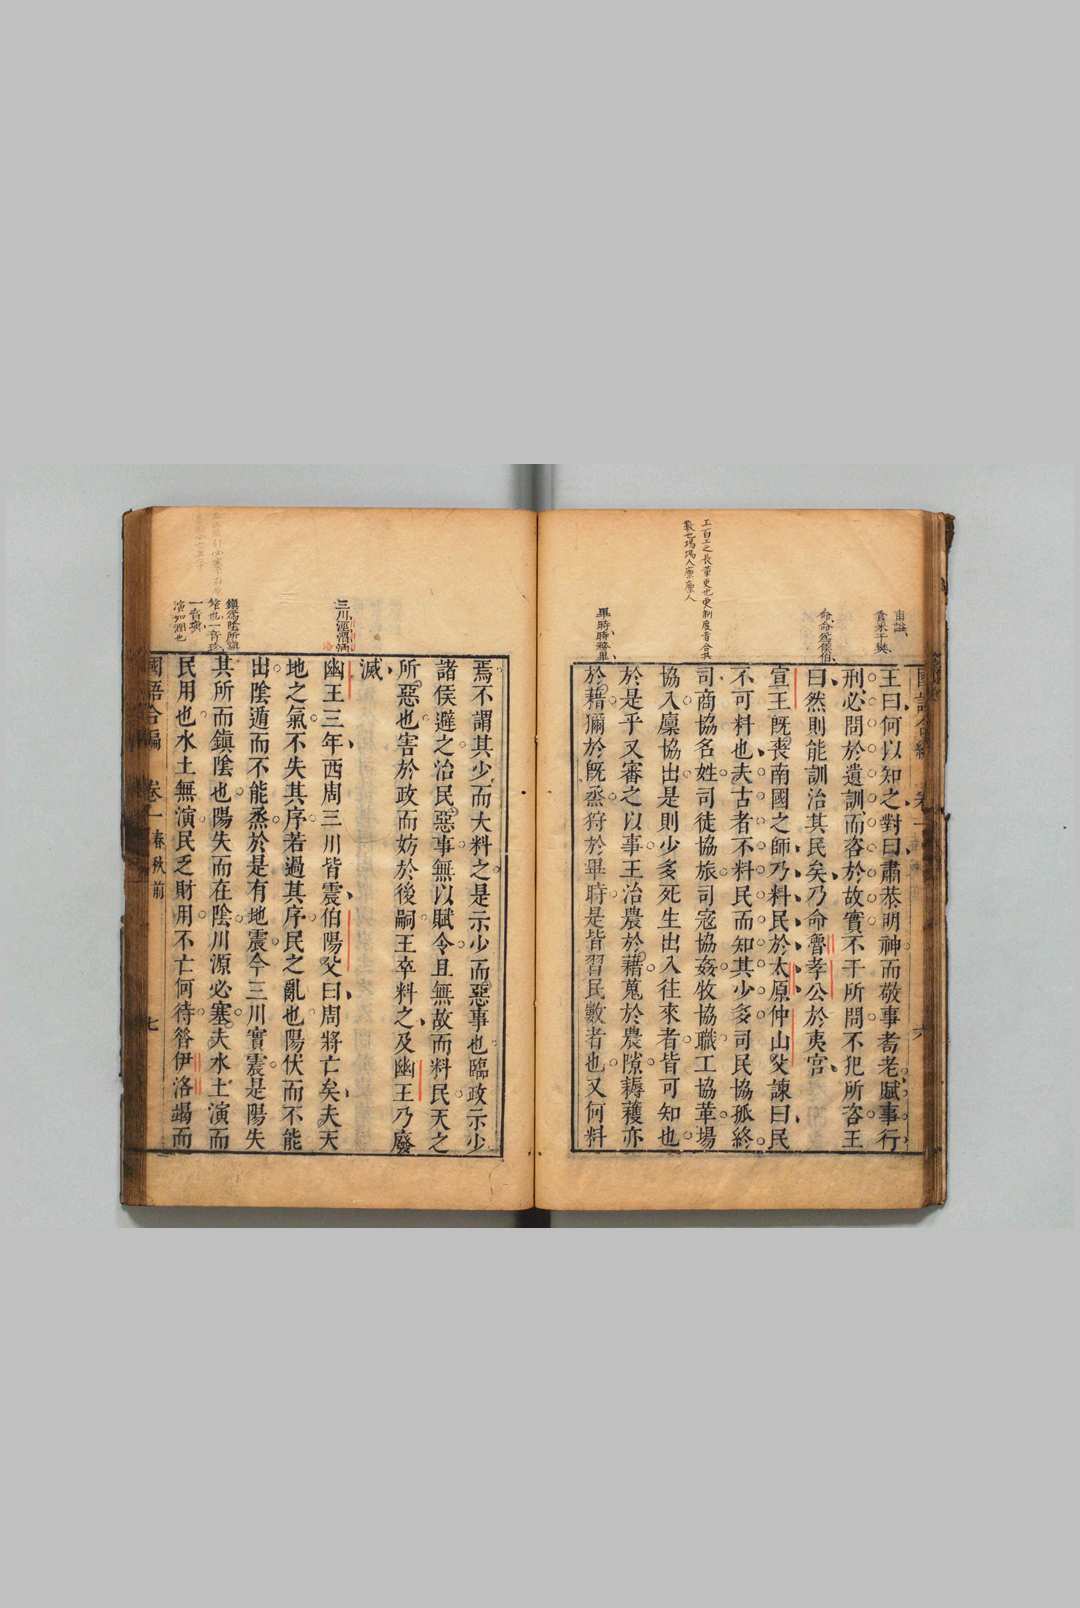 王曰何以知之對曰肅恭明神而敬事耇老賦事行
刑必問於遺訓而咨於故實不干所問不犯所咨王
曰然則能訓治其民矣乃命魯孝公於夷宮
宣王既喪南國之師乃料民於太原仲山父諫曰民
不可料也夫古者不料民而知其少多司民協孤終
司商協名姓司徒協旅司寇協姦牧協職工協革場
協入廩協出是則少多死生出入往來者皆可知也
於是乎又審之以事王治農於藉蒐於農隙耨穫亦
於藉獮於既烝狩於畢時是皆習民數者也又何料
工百工之長革更也更制度者合其
數也場場人廩廩人
命命爲侯伯
畢時時務畢
焉不謂其少而大料之是示少而惡事也臨政示少
諸侯避之治民惡事無以賦令且無故而料民天之
所惡也害於政而妨於後嗣王卒料之及幽王乃廢
滅
幽王三年西周三川皆震伯陽父曰周將亡矣夫天
地之氣不失其序若過其序民之亂也陽伏而不能
出陰遁而不能烝於是有地震今三川實震是陽失
其所而鎮陰也陽失而在陰川源必塞夫水土演而
民用也水土無演民乏財用不亡何待昝伊洛竭而
三川涇渭汭
洛
鎮爲陰所鎮
國語合編 卷一 春秋前 七